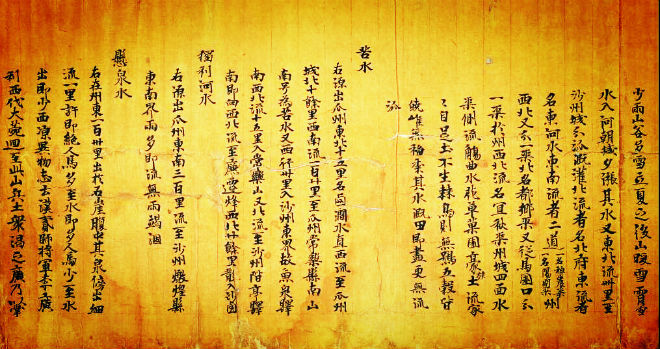 少雨山谷多雪立夏之後山暖雪消雪
水入河朝減夕漲其水又東北流卅里至
沙州城分派溉灌北流者名北府東流者
名東河水東南流者二道一名神農渠一名陽開渠州
西北又分一渠北名都鄉渠又從馬圈口分
一渠於州西北流名宜秋渠州城四面水
渠側流觴曲水花草菓園豪族士流家
々自足土不生棘鳥則無鴞五穀皆
饒唯無稻黍其水溉田即盡更無流
派
苦水
右源出瓜州東北十五里名鹵澗水直西流至瓜州
城北十餘里西南流一百廿里至瓜州常樂縣南山
南号為苦水又西行卅里入沙州東界故魚泉驛
南西北流十五里入常樂山又北流至沙州階亭驛
南即向西北流至廣顯烽西北廿餘里散入沙鹵
獨利河水
右源出瓜州東南三百里流至沙州燉煌縣
東南界雨多即流無雨竭涸
懸泉水
右在州東一百卅里出於石崖腹中其泉傍出細
流一里許即絕人馬多至水即多人馬少至水
出即少西涼異物志云漢貳師將軍李廣
利西伐大宛迴至此山兵士衆渴乏廣乃以掌